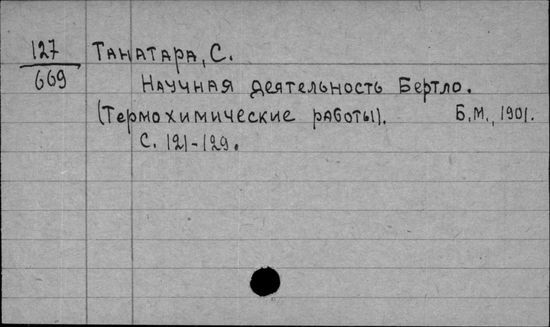 127
669
Танатара, С.
Научная деятельность Бертло.
(Термохимические работы). Б.М., 1901.
С. 121-129.